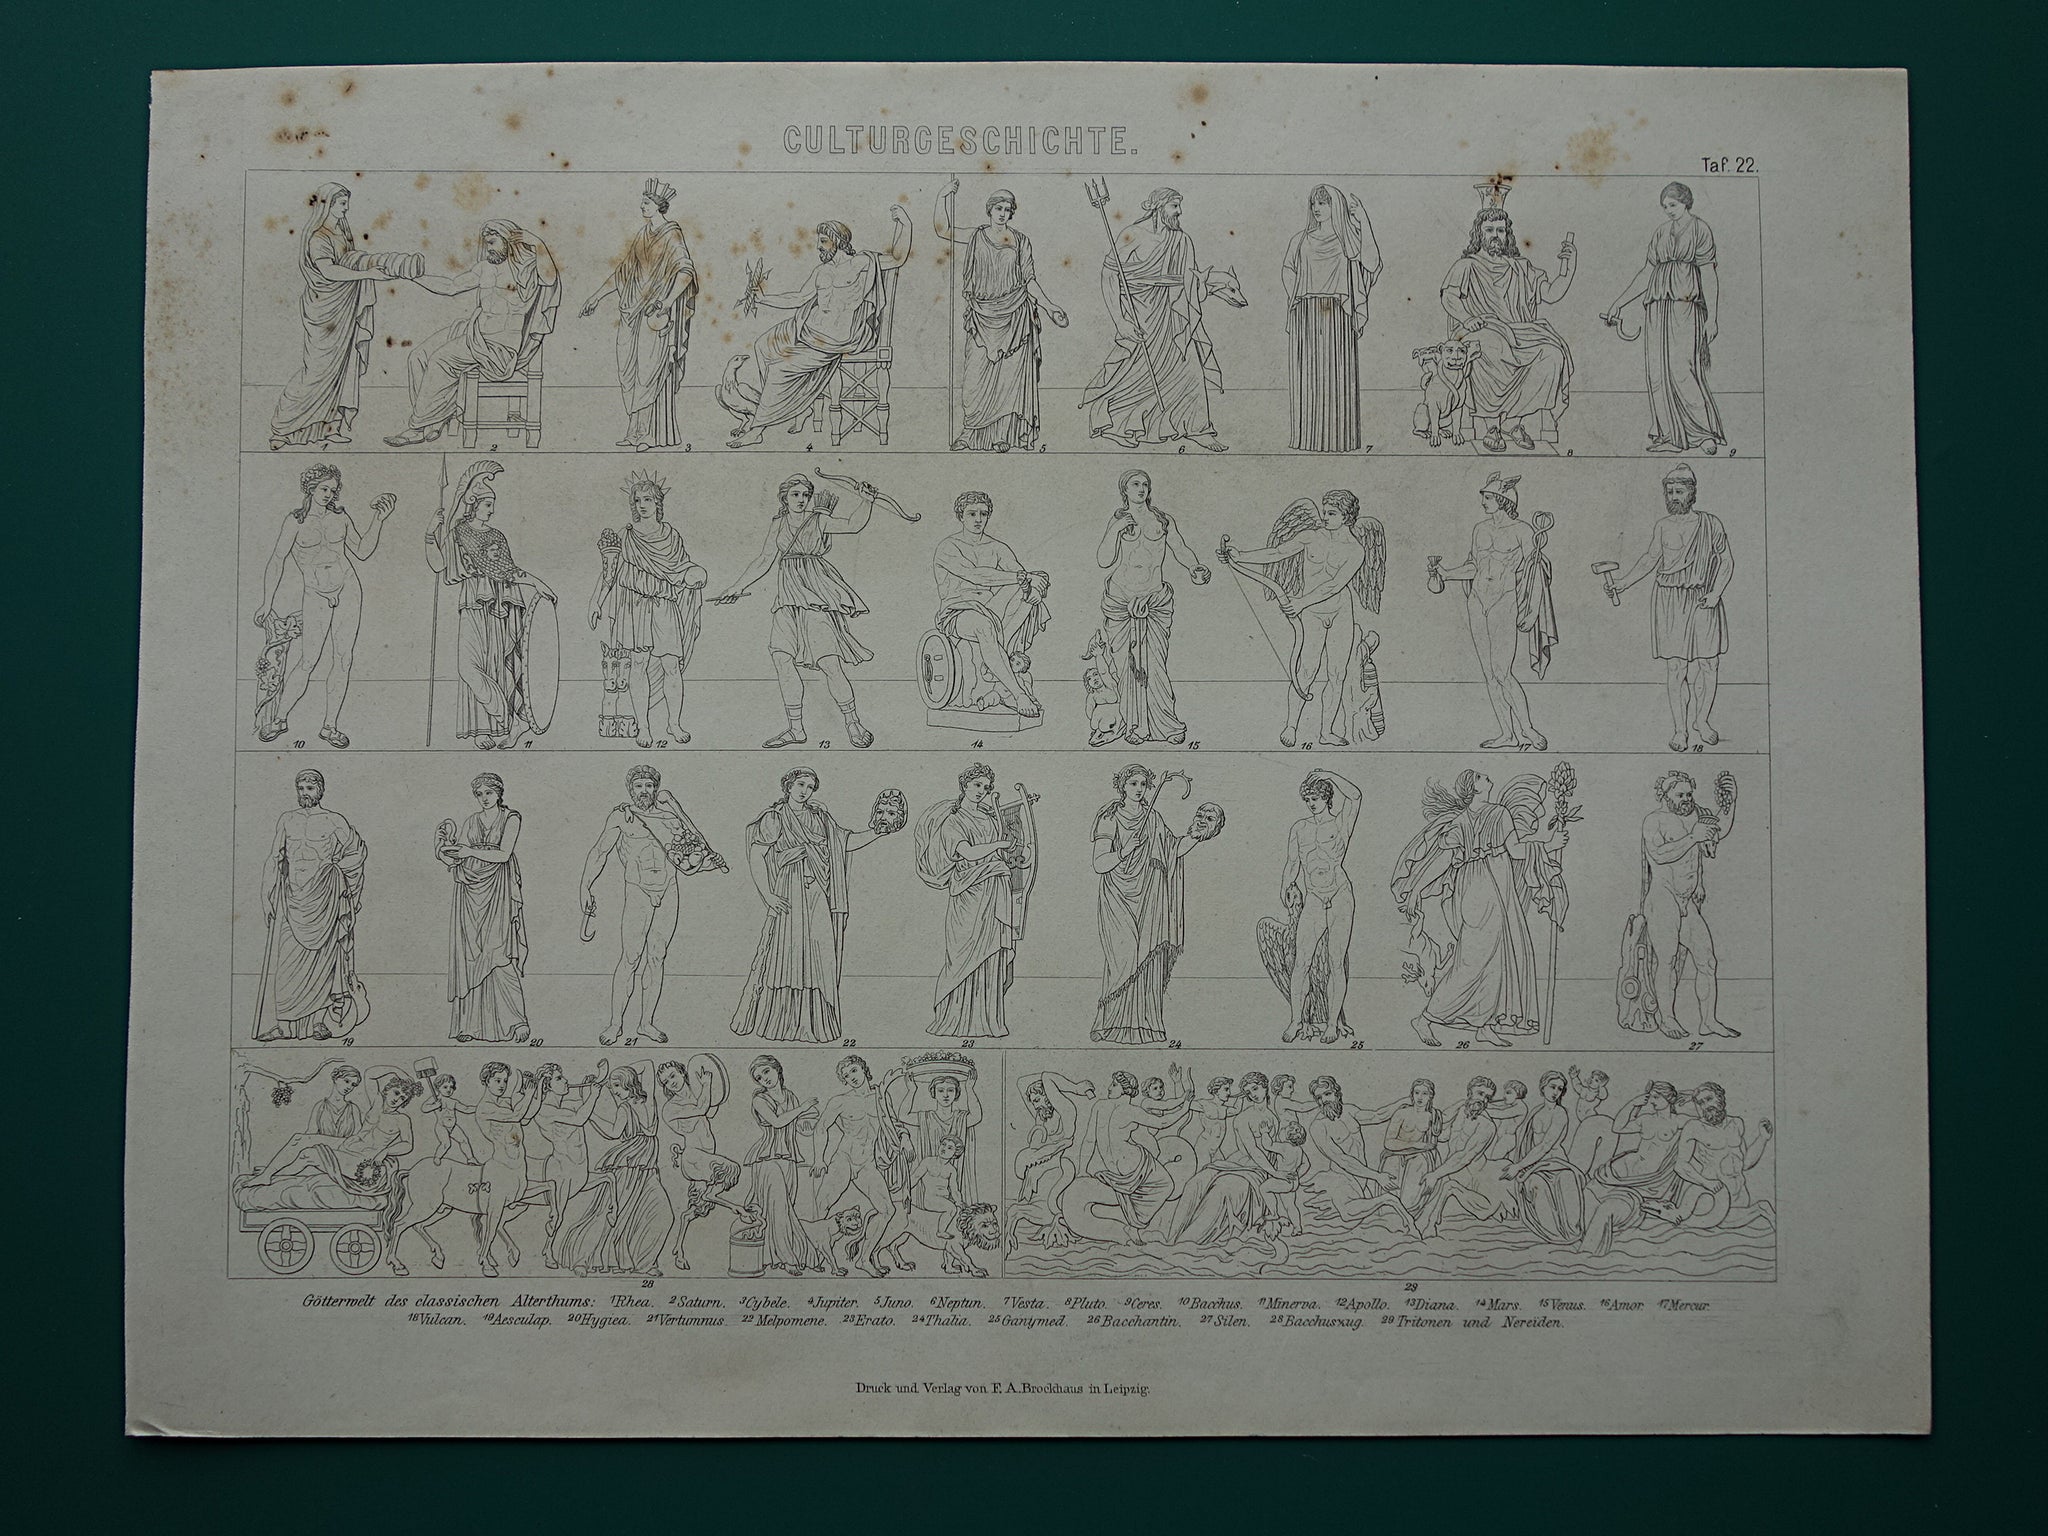 CULTURGESCHICHTE.
Taf. 22.
1 2 3 4 5 6 7 8 9
10 11 12 13 14 15 16 17 18
19 20 21 22 23 24 25 26 27
28 29
Götterwelt des classischen Alterthums: ¹Rhea. ²Saturn. ³Cybele. ⁴Jupiter. ⁵Juno. ⁶Neptun. ⁷Vesta. ⁸Pluto. ⁹Ceres. ¹⁰Bacchus. ¹¹Minerva. ¹²Apollo. ¹³Diana. ¹⁴Mars. ¹⁵Venus. ¹⁶Amor. ¹⁷Mercur.
¹⁸Vulcan. ¹⁹Aesculap. ²⁰Hygiea. ²¹Vertumnus. ²²Melpomene. ²³Erato. ²⁴Thalia. ²⁵Ganymed. ²⁶Bacchantin. ²⁷Silen. ²⁸Bacchuszug. ²⁹Tritonen und Nereïden.
Druck und Verlag von F. A. Brockhaus in Leipzig.